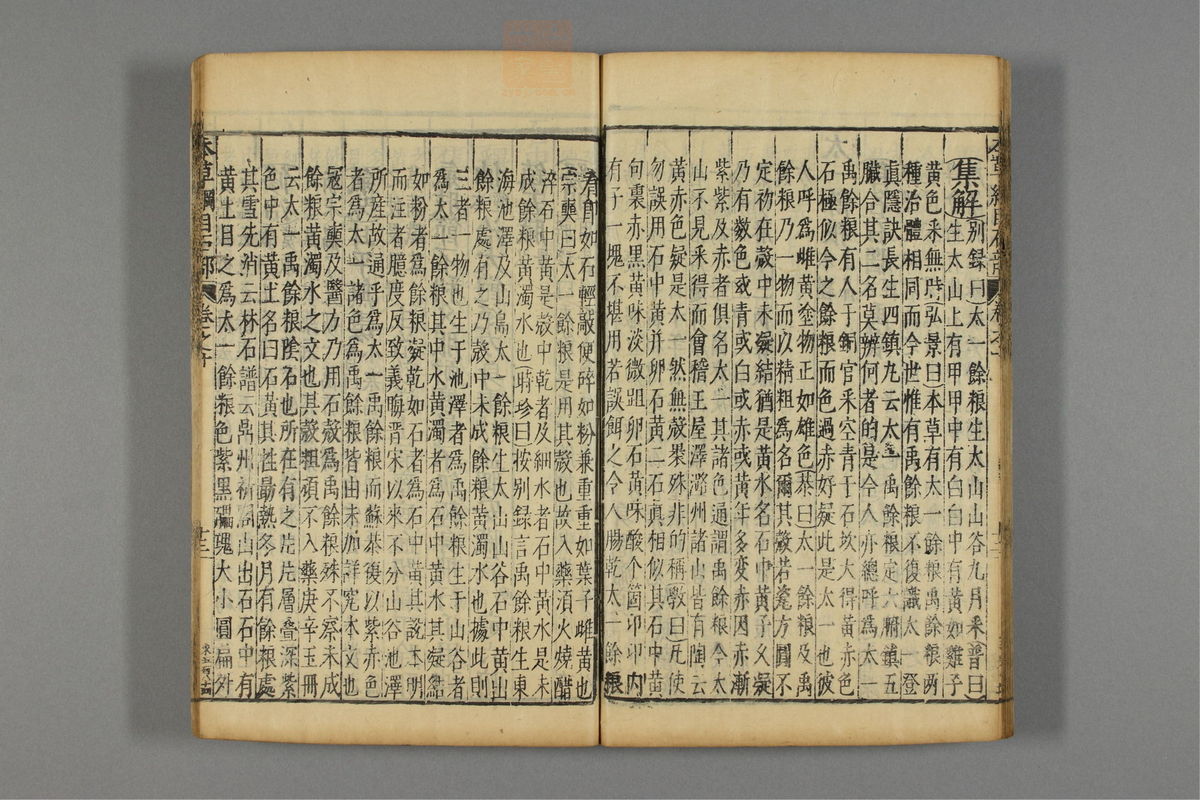 集解別録曰太一餘粮生太山山谷九月采普曰
生太山上有甲甲中有白白中有黃如雞子
黃色采無時弘景曰本草有太一餘粮禹餘粮两
種治體相同而今世惟有禹餘粮不復識太一登
眞隱訣長生四鎮丸云太一禹餘粮定六腑鎮五
臟合其二名莫辨何者的是今人亦總呼爲太一
禹餘粮有人于銅官采空青于石坎大得黃赤色
石極似今之餘粮而色過赤好疑此是太一也彼
人呼爲雌黃塗物正如雄色恭曰太一餘粮及禹
餘粮乃一物而以精粗爲名爾其殼若瓷方圓不
定初在殼中未凝結猶是黃水名石中黃子久凝
乃有數色或青或白或赤或黃年多變赤因赤漸
紫紫及赤者俱名太一其諸色通謂禹餘粮今太
山不見采得而會稽王屋澤潞州諸山皆有陶云
黃赤色疑是太一然無殼裹殊非的稱斆曰凡使
勿誤用石中黃并卵石黃二石真相似其石中黃
向裏赤黑黃味淡微跙卵石黃味酸个箇卵卵内
有子一塊不堪用若誤餌之令人腸乾太一餘粮
看即如石輕敲便碎如粉兼重重如葉子雌黃也
宗奭曰太一餘粮是用其殼也故入藥須火燒醋
淬石中黃是殼中乾者及細水者石中黃水是未
成餘粮黃濁水也時珍曰按别録言禹餘粮生東
海池澤及山島太一餘粮生太山山谷石中黃出
餘粮處有之乃殼中未成餘粮黃濁水也據此則
三者一物也生于池澤者爲禹餘粮生于山谷者
爲太一餘粮其中水黃濁者爲石中黃水其凝結
如粉者爲餘粮凝乾如石者爲石中黃其說本明
而注者臆度反致義晦晋宋以來不分山谷池澤
所産故通乎爲太一禹餘粮而蘇恭復以紫赤色
者爲太一諸色爲禹餘粮皆由未加詳究本文也
宼宗奭及醫方乃用石殼爲禹餘粮殊不察未成
餘粮黃濁水之文也其殼粗頑不入藥庚辛玉冊
云太一禹餘粮隂石也所在有之片片層疊深紫
色中有黃土名曰石黃其性最熱冬月有餘粮處
其雪先消云林石譜云鼎州祈閣山出石石中有
黃土目之爲太一餘粮色紫黑礧磈大小圓扁外
本草綱目石部
卷之十
廿三